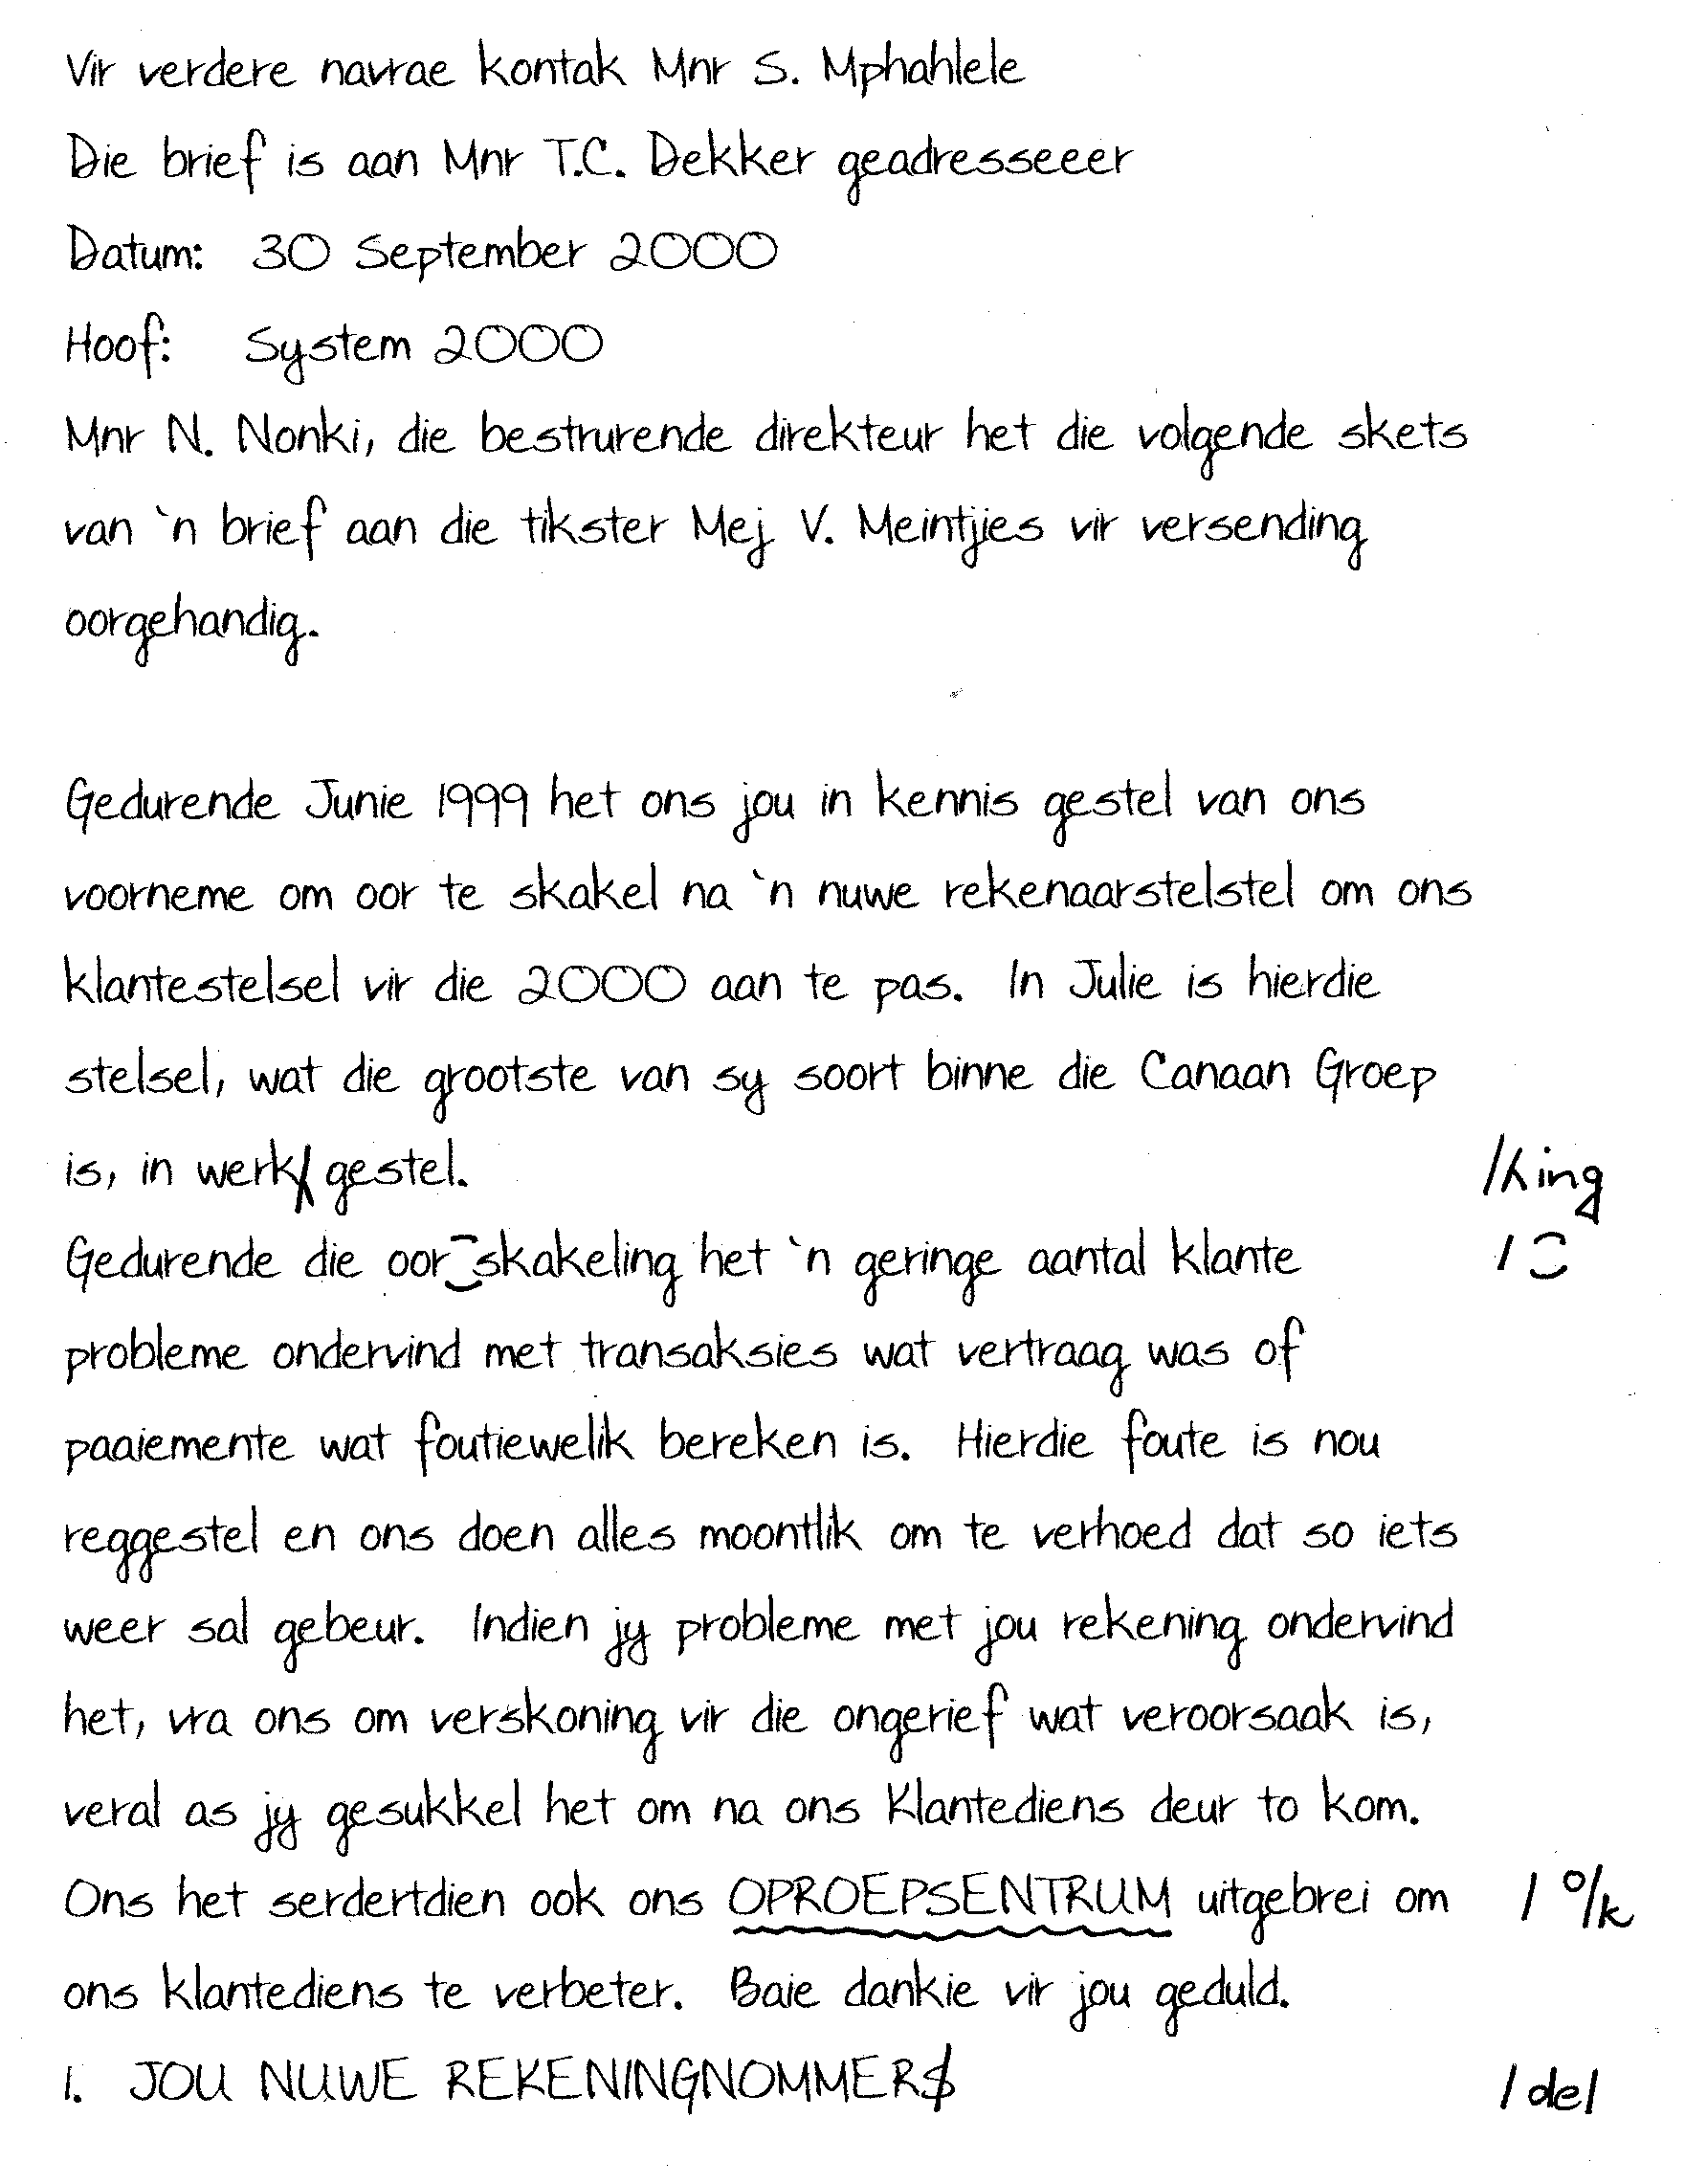 Vir verdere navrae kontak Mnr S. Mphahlele
Die brief is aan Mnr T.C. Dekker geadresseeer
Datum: 30 September 2000
Hoof: System 2000
Mnr N. Nonki, die bestrurende direkteur het die volgende skets
van 'n brief aan die tikster Mej V. Meintjies vir versending
oorgehandig.
Gedurende Junie 1999 het ons jou in kennis gestel van ons
voorneme om oor te skakel na 'n nuwe rekenaarstelstel om ons
klantestelsel vir die 2000 aan te pas. In Julie is hierdie
stelsel, wat die grootste van sy soort binne die Canaan Groep
is, in werk/gestel. /⁁ing
Gedurende die oor skakeling het 'n geringe aantal klante /
probleme ondervind met transaksies wat vertraag was of
paaiemente wat foutiewelik bereken is. Hierdie foute is nou
reggestel en ons doen alles moontlik om te verhoed dat so iets
weer sal gebeur. Indien jy probleme met jou rekening ondervind
het, vra ons om verskoning vir die ongerief wat veroorsaak is,
veral as jy gesukkel het om na ons Klantediens deur to kom.
Ons het serdertdien ook ons OPROEPSENTRUM uitgebrei om / o/k
ons klantediens te verbeter. Baie dankie vir jou geduld.
1. JOU NUWE REKENINGNOMMERS / del